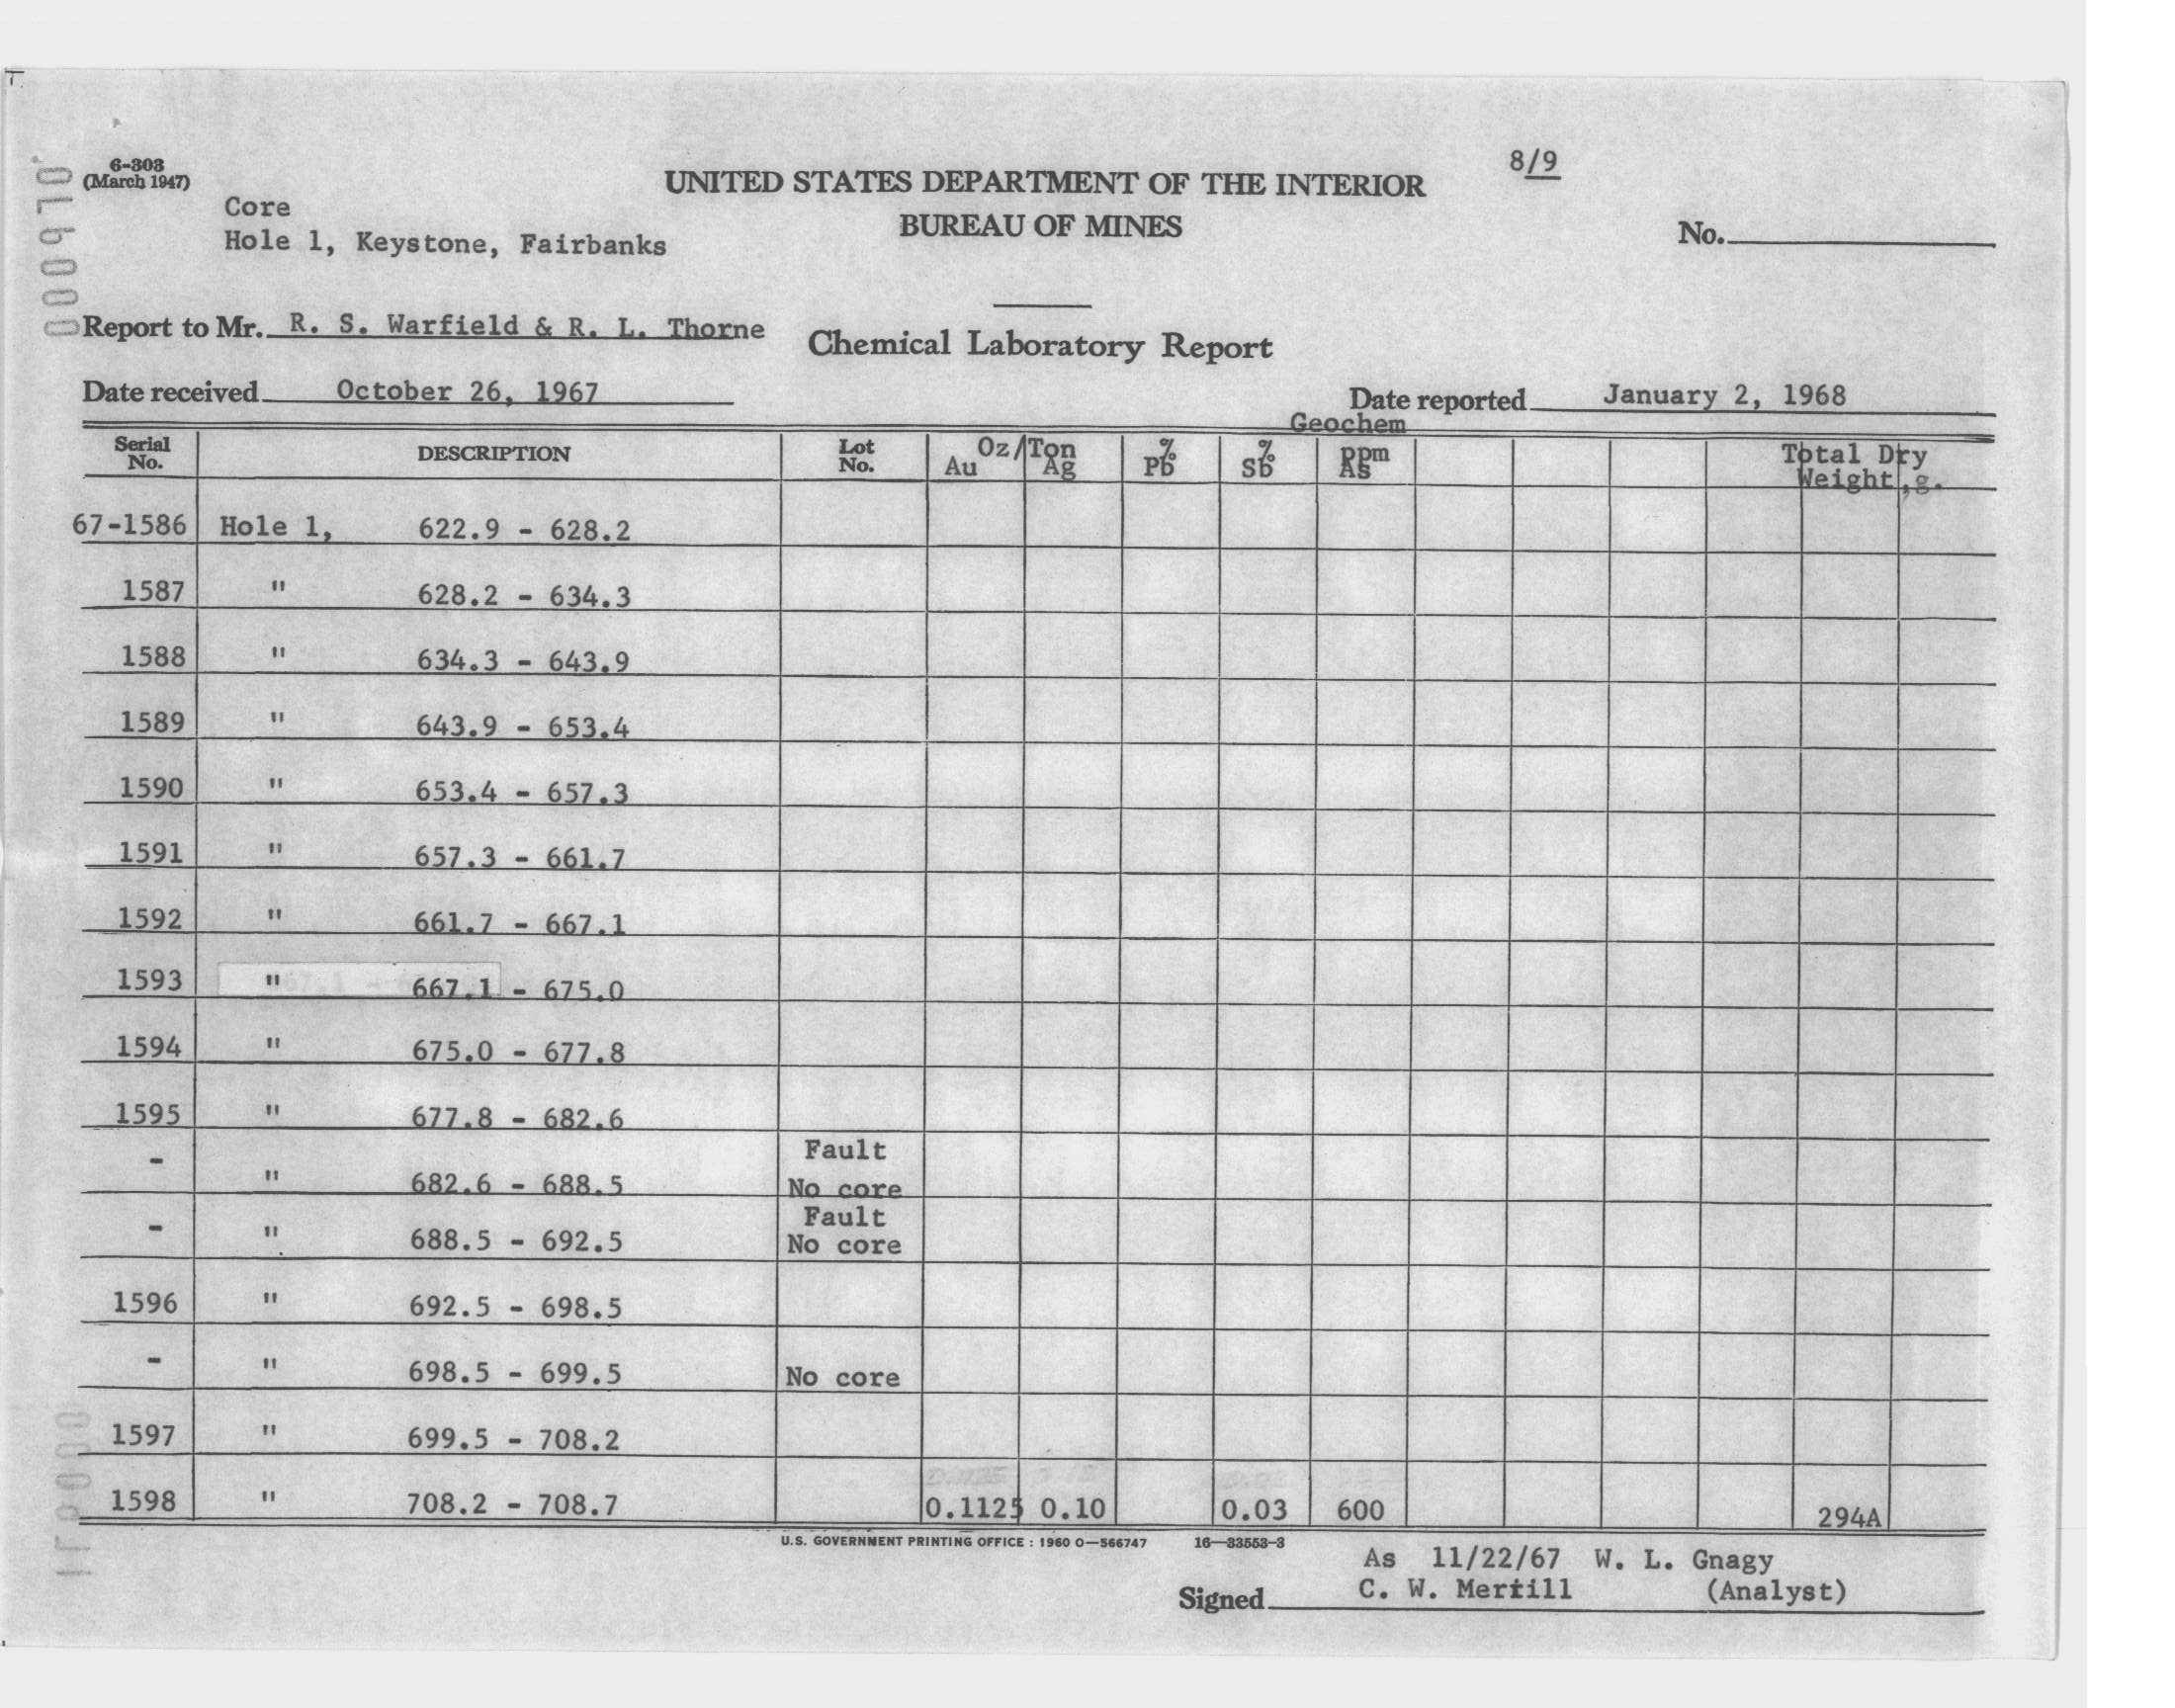 6-303
(March 1947)
UNITED STATES DEPARTMENT OF THE INTERIOR
8/9
Core
BUREAU OF MINES
Hole 1, Keystone, Fairbanks
No.
Report to Mr. R. S. Warfield & R. L. Thorne
Chemical Laboratory Report
Date received October 26, 1967
Date reported January 2, 1968
Geochem
Serial No. DESCRIPTION Lot No. Oz/Ton Au Ag % Pb % Sb ppm As Total Dry Weight,g.
67-1586 Hole 1, 622.9 - 628.2
1587 " 628.2 - 634.3
1588 " 634.3 - 643.9
1589 " 643.9 - 653.4
1590 " 653.4 - 657.3
1591 " 657.3 - 661.7
1592 " 661.7 - 667.1
1593 " 667.1 - 675.0
1594 " 675.0 - 677.8
1595 " 677.8 - 682.6
- " 682.6 - 688.5 Fault No core
- " 688.5 - 692.5 Fault No core
1596 " 692.5 - 698.5
- " 698.5 - 699.5 No core
1597 " 699.5 - 708.2
1598 " 708.2 - 708.7 0.1125 0.10 0.03 600 294A
U.S. GOVERNMENT PRINTING OFFICE : 1960 O—566747 16—33553-3
As 11/22/67 W. L. Gnagy
Signed C. W. Merrill (Analyst)